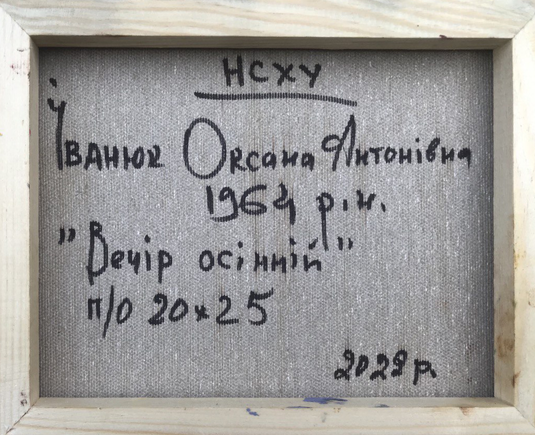 НСХУ
Іванюк Оксана Антонівна
1964 р.н.
"Вечір осінній"
п/о 20x25
2022 р.